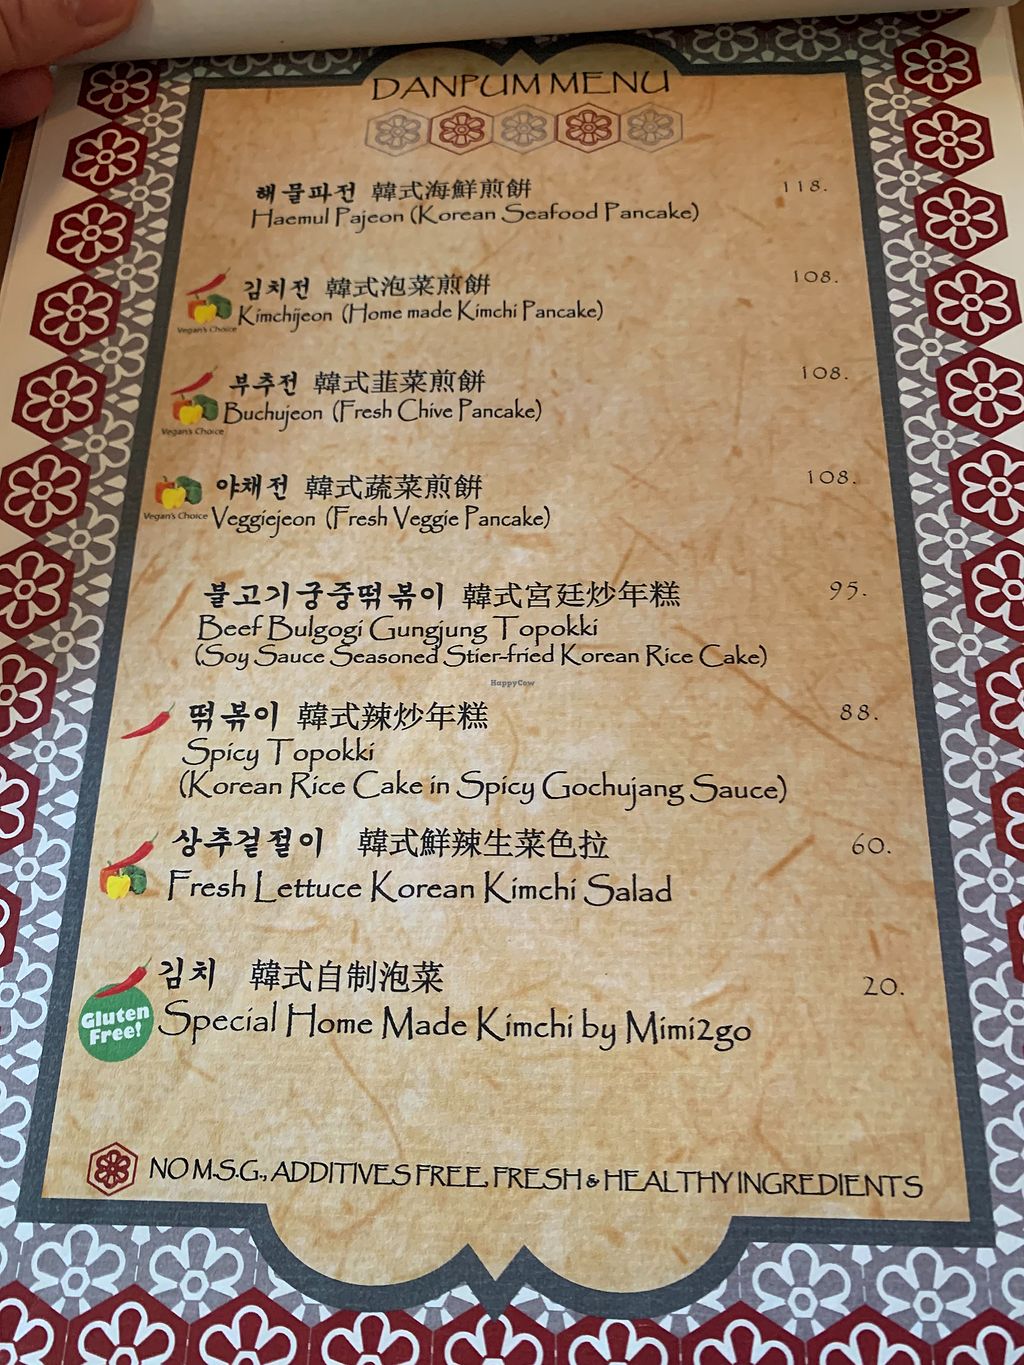 DANPUM MENU
해물파전 韓式海鮮煎餅 118.
Haemul Pajeon (Korean Seafood Pancake)
김치전 韓式泡菜煎餅 108.
Vegan's Choice Kimchijeon (Home made Kimchi Pancake)
부추전 韓式韮菜煎餅 108.
Buchujeon (Fresh Chive Pancake)
Vegan's Choice
야채전 韓式蔬菜煎餅 108.
Vegan's Choice Veggiejeon (Fresh Veggie Pancake)
불고기궁중떡볶이 韓式宮廷炒年糕 95.
Beef Bulgogi Gungjung Topokki
(Soy Sauce Seasoned Stier-fried Korean Rice Cake)
HappyCow
떡볶이 韓式辣炒年糕 88.
Spicy Topokki
(Korean Rice Cake in Spicy Gochujang Sauce)
상추겉절이 韓式鮮辣生菜色拉 60.
Fresh Lettuce Korean Kimchi Salad
김치 韓式自制泡菜 20.
Gluten Free! Special Home Made Kimchi by Mimi2go
NO M.S.G., ADDITIVES FREE, FRESH & HEALTHY INGREDIENTS